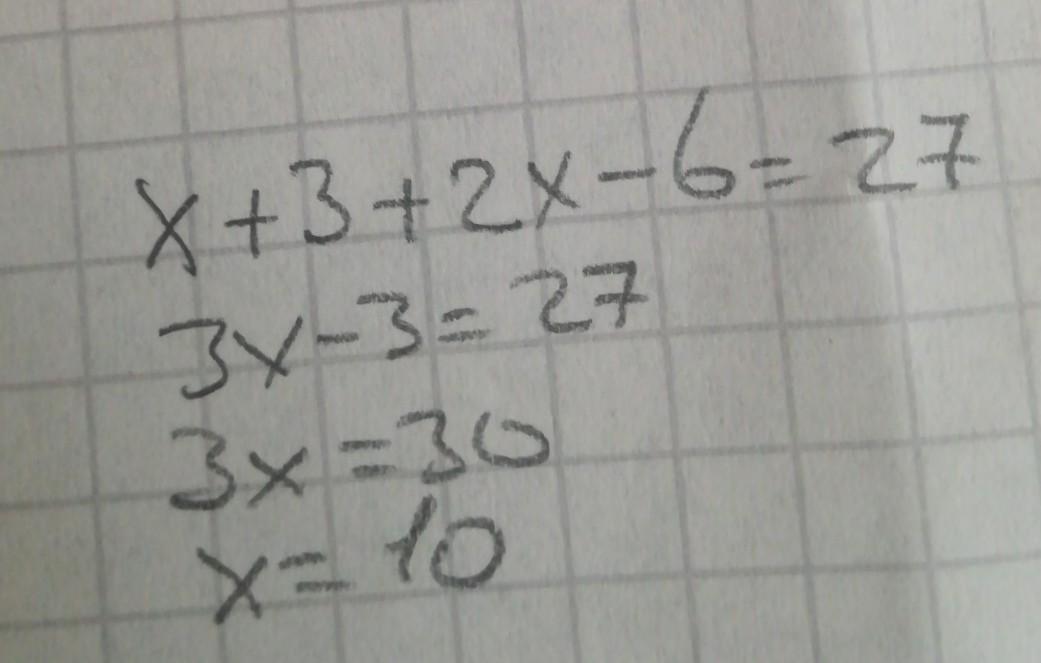 x+3+2x-6=27
3x-3=27
3x=30
x=10